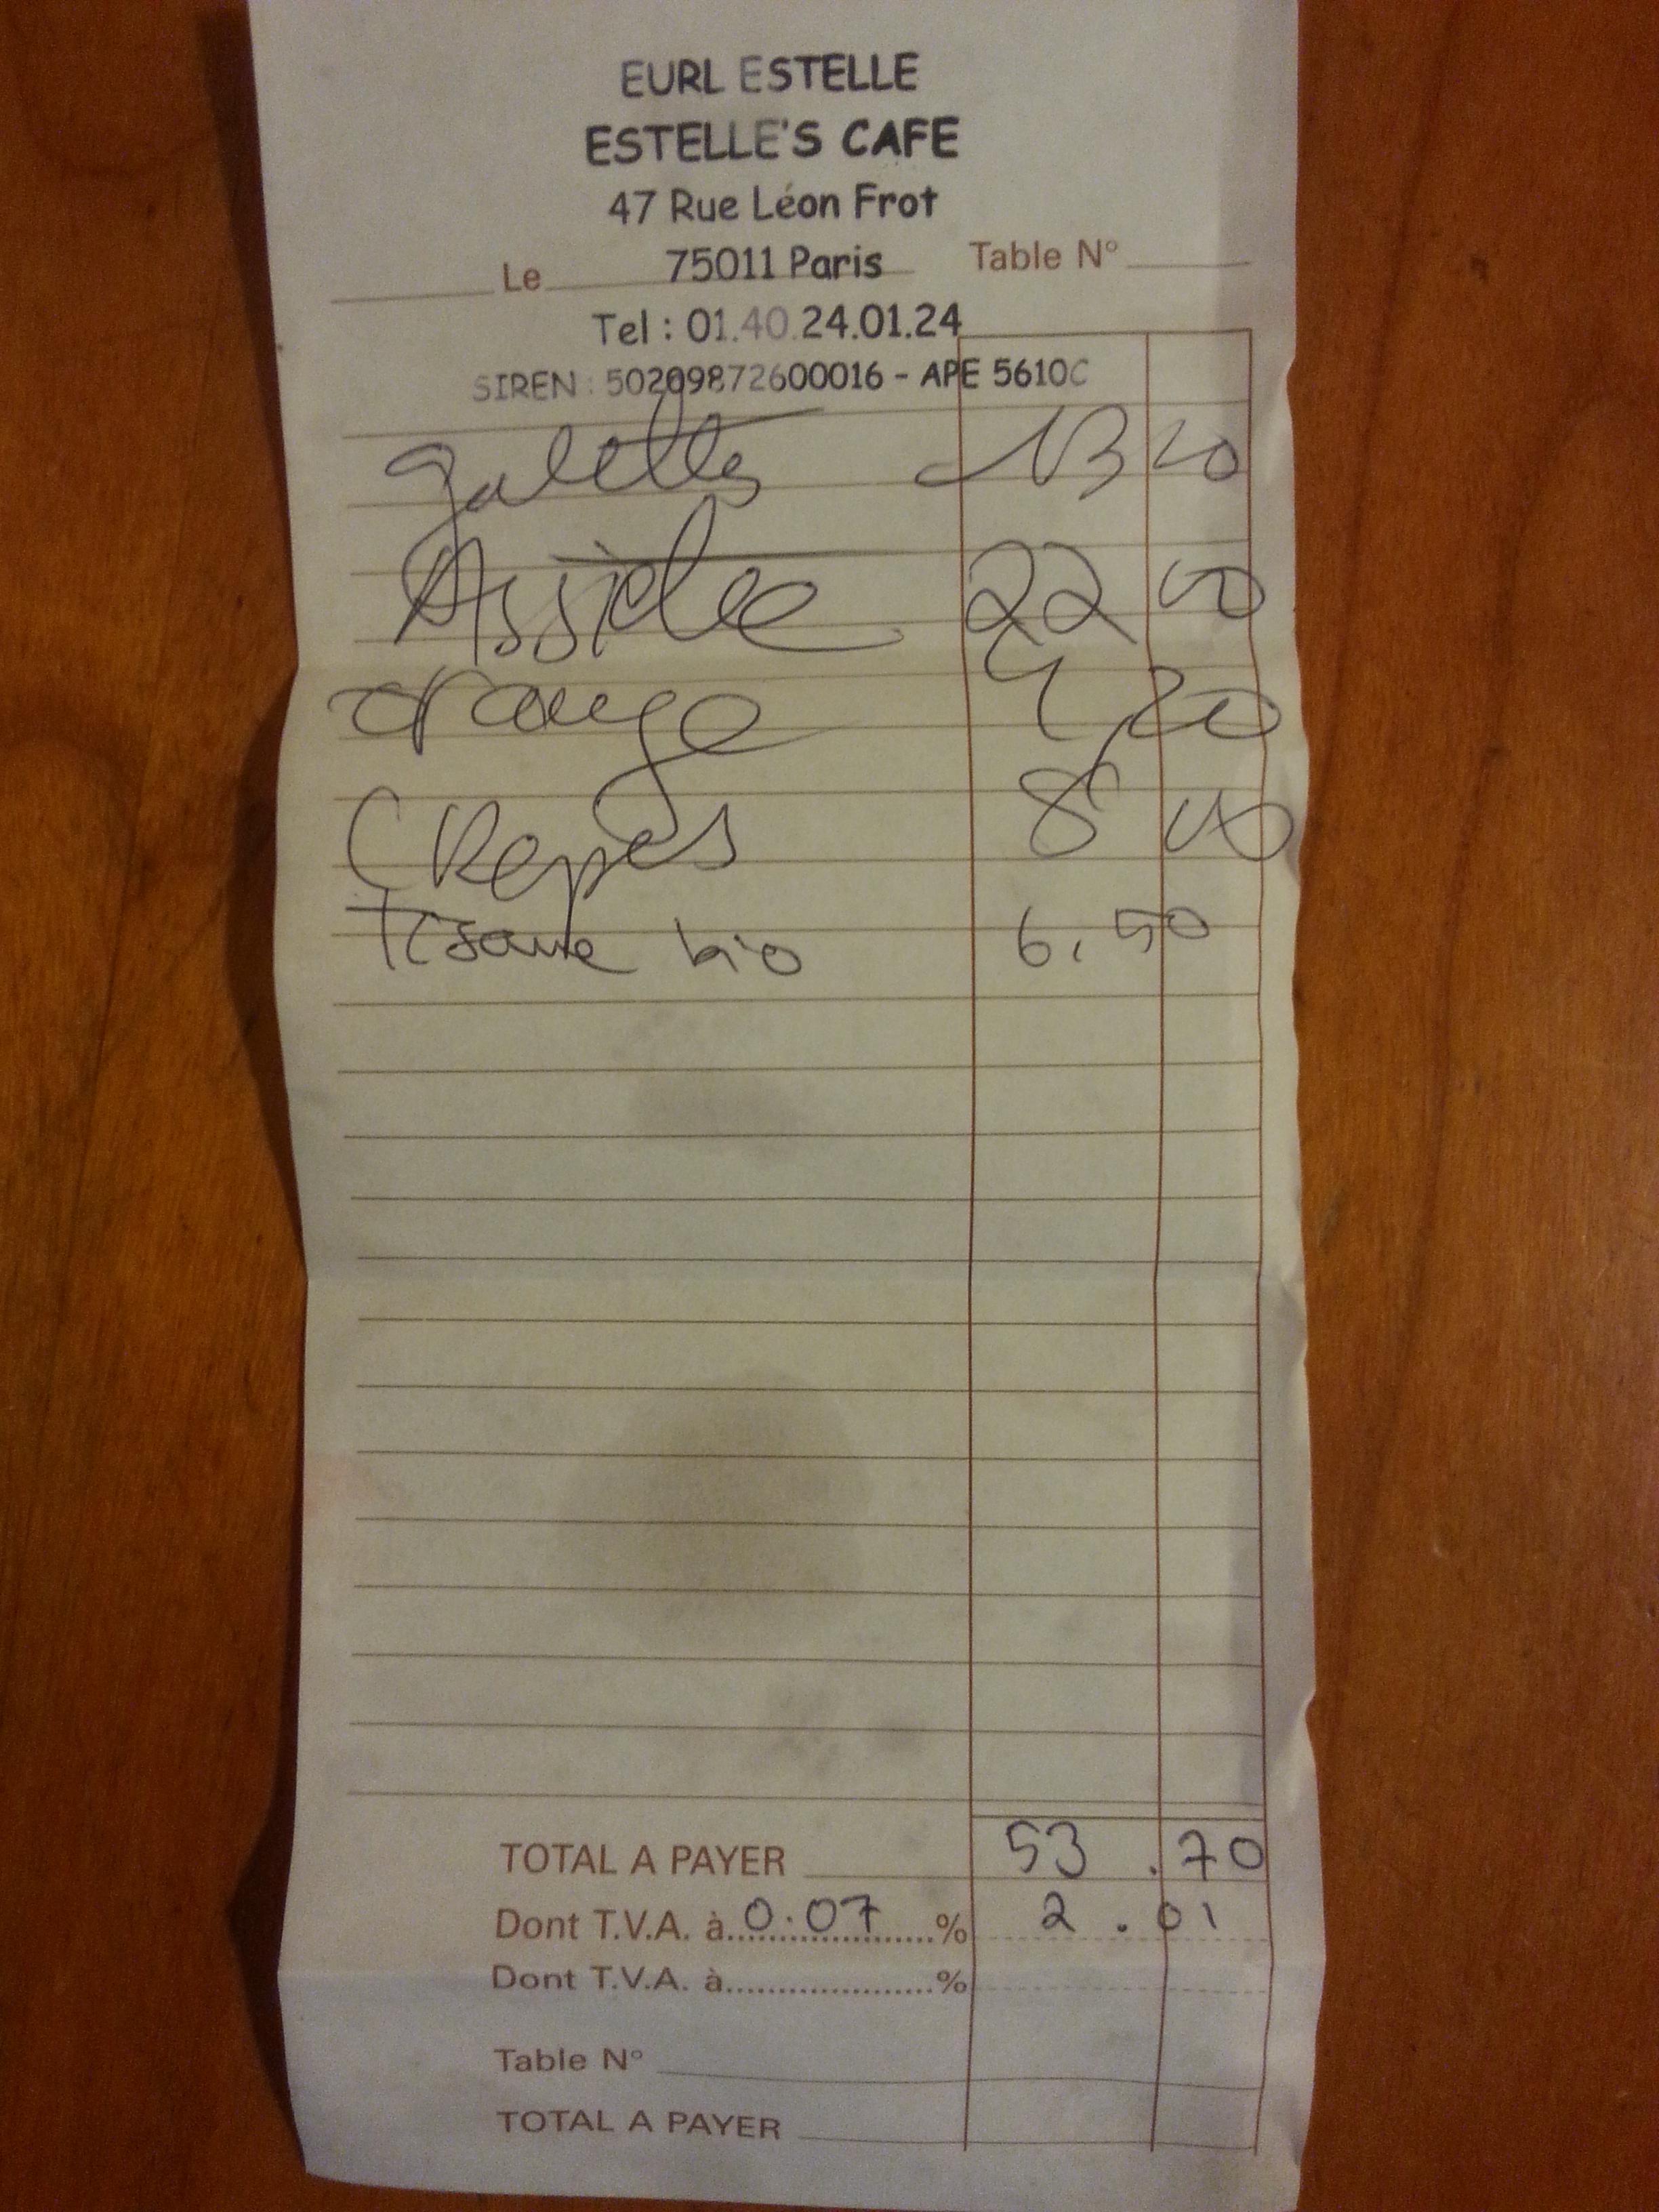 EURL ESTELLE
ESTELLE'S CAFE
47 Rue Léon Frot
75011 Paris
Le Table N°
Tel : 01.40.24.01.24
SIREN : 50209872600016 - APE 5610C
galettes 13 00
Assiette 22 00
orange 4,20
CRepes 8 00
Tisane bio 6,50
TOTAL A PAYER 53.70
Dont T.V.A. à 0.07 % 2.01
Dont T.V.A. à....................%
Table N°
TOTAL A PAYER